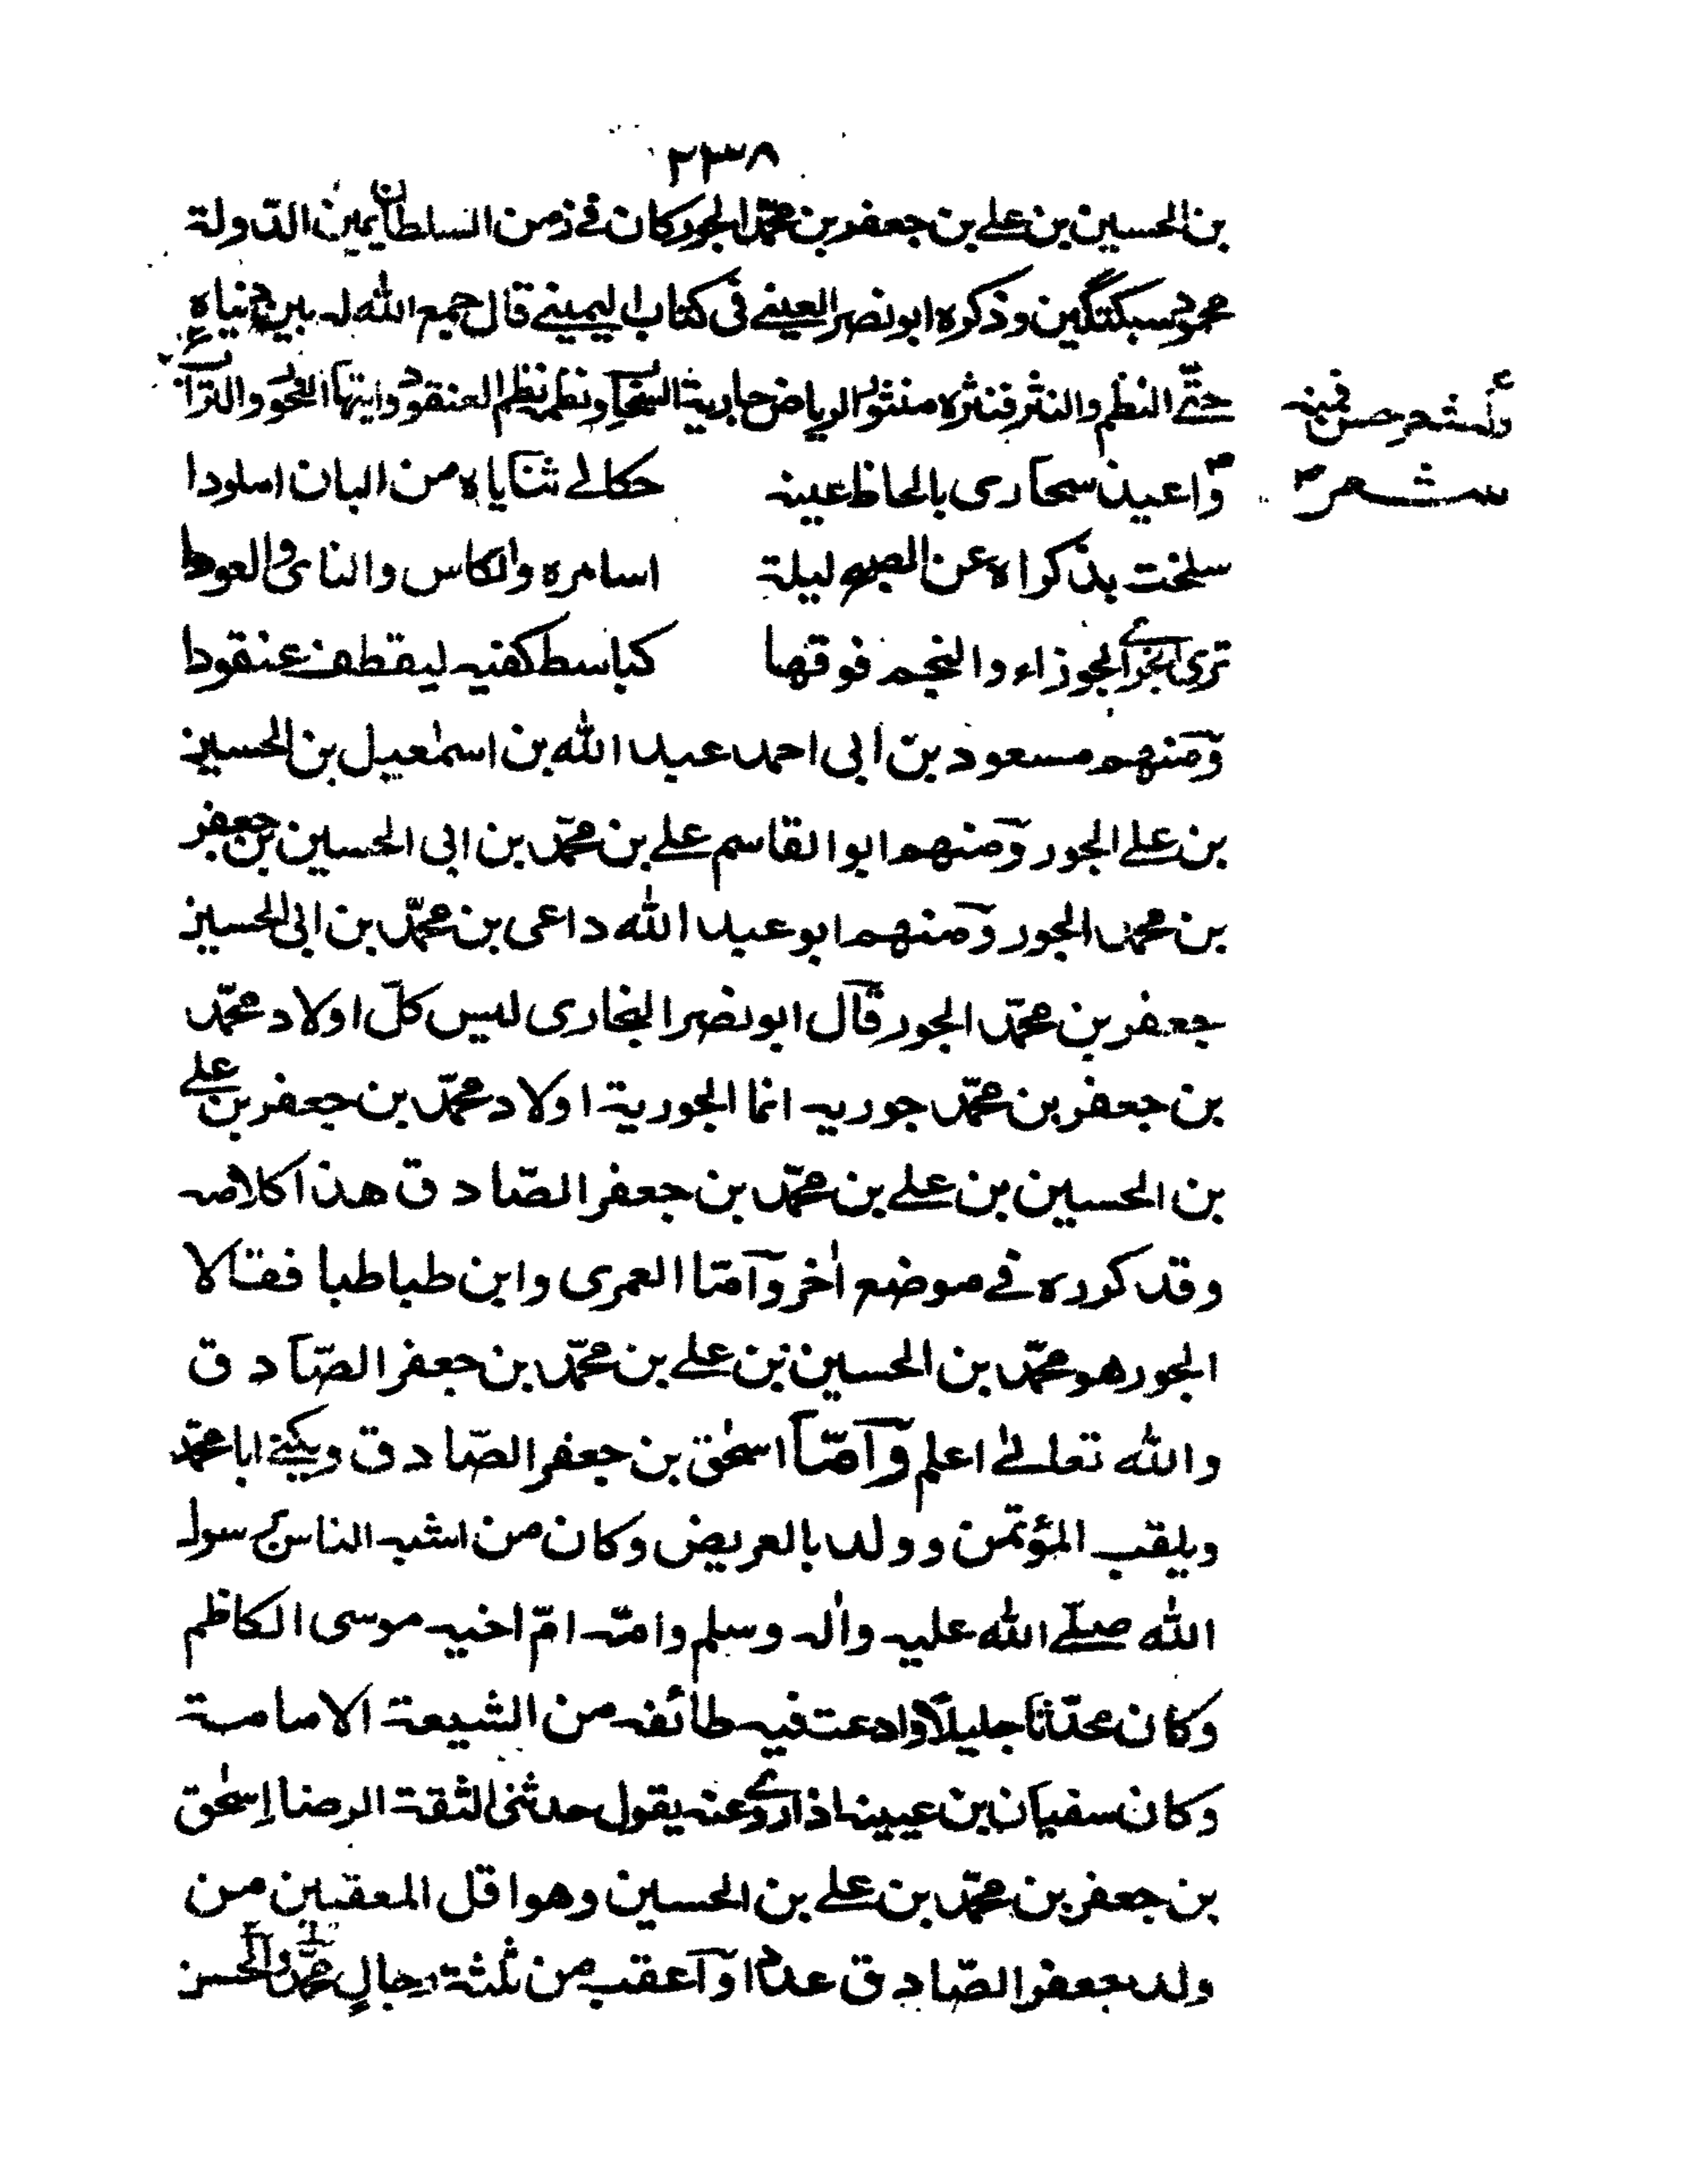 ٢٣٨
بن الحسين بن علے بن جعفر بن محمّد الجور كان فے زمن السلطان يمين الدّولة
محمود سبكتگين وذكره ابو نصر العينے فى كتاب اليمينے قال جمع الله له بين
حتّے النظم والنثر فنثره منثور الرياض جاد بة السحاب ونظمه نظم العنقود النحور والترا
وله شعر حسن فمنه
شعر
واعيد سحارى بالحاظ عينه حكالے ثناياه من البان املودا
سلخت بذكراه عن الصبح ليلة اسامره والكاس والناى والعودا
ترى الجوزاء والنجم فوقها كباسط كفيه ليقطف عنقودا
ومنهم مسعود بن ابى احمد عبد الله بن اسمٰعيل بن الحسين
بن علے الجور ومنهم ابوا القاسم علے بن محمّد بن ابى الحسين بن جعفر
بن محمد الجور ومنهم ابو عبد الله داعى بن محمّد بن ابى الحسين
جعفر بن محمّد الجور قال ابو نصر البخارى ليس كلّ اولاد محمّد
بن جعفر بن محمّد جوريه انما الجورية اولاد محمّد بن جعفر بن علے
بن الحسين بن علے بن محمّد بن جعفر الصّادق هذا كلامه
وقد كورده فے موضع اٰخر وامّا العمرى وابن طباطبا فقالا
الجور هو محمّد بن الحسين بن علے بن محمّد بن جعفر الصّادق
والله تعالےٰ اعلم وامّا اسحٰق بن جعفر الصّادق ويكنے ابا محمّد
ويلقب المؤتمن وولد بالعريض وكان من اشبه الناس برسول
الله صلّے الله عليه واٰله وسلم وامّه امّ اخيه موسى الكاظم
وكان محدّثا جليلا وادعت فيه طائفه من الشيعة الامامية
وكان سفيان بن عيينه اذا روےٰ عنه يقول حدثنى الثقة الرضا اسحٰق
بن جعفر بن محمّد بن علے بن الحسين وهو اقل المعقبين من
ولد جعفر الصّادق عددا واعقب من ثلٰثة رجالٍ محمّد والحسن